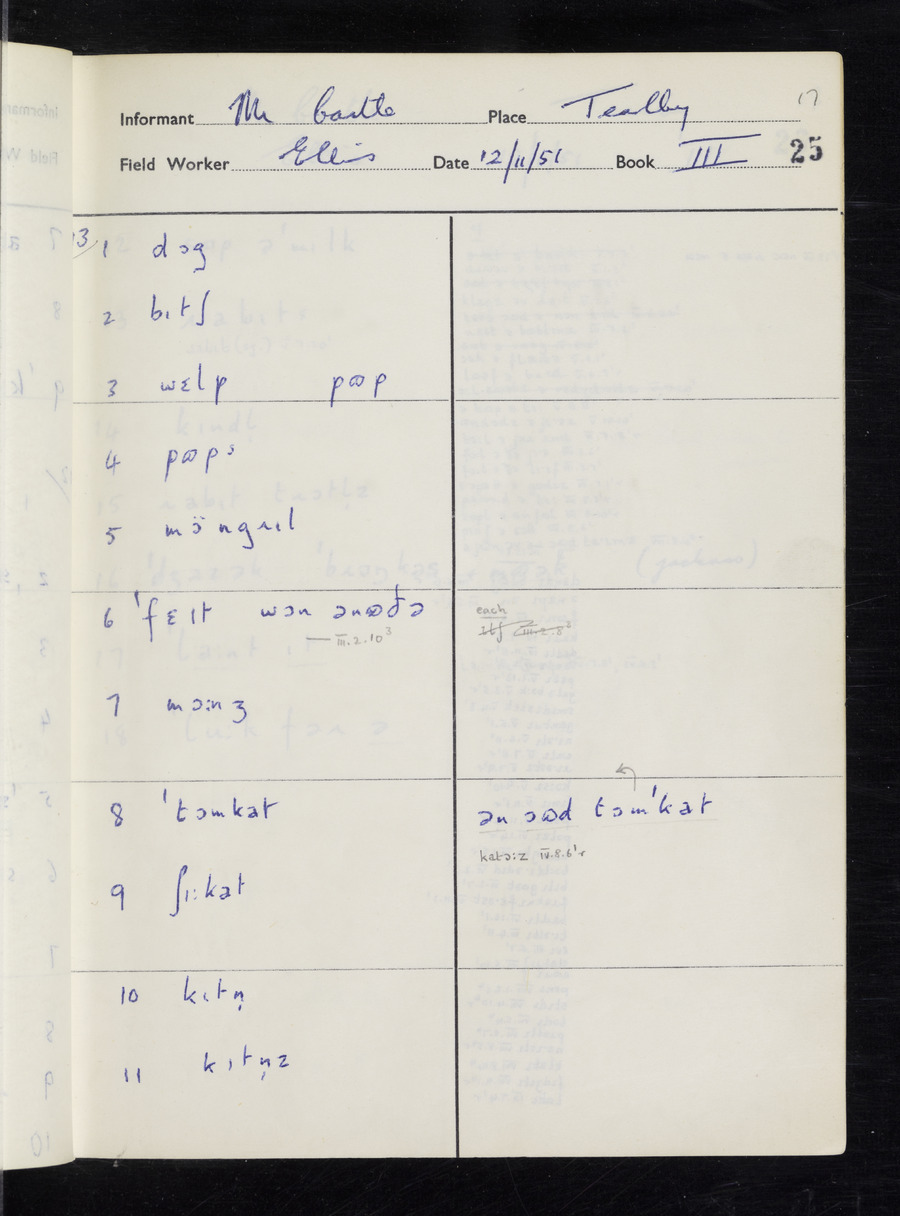 17
Informant Mr Castle Place Tealby
Field Worker Ellis Date 12/11/51 Book III 25
13/ 1 dɔg
2 bɪtʃ
3 wɛlp pɷp
4 pɷps
5 mɔ̈ngrɪl
6 ˈfɛɪt wɔn ənɷðə
— III.2.10³
each
7 mɔːnʒ
8 ˈtɔmkat ən ɔɷd tɔmˈkat
katəːz IV.8.6'r
9 ʃɪːkat
10 kɪtn̩
11 kɪtn̩z